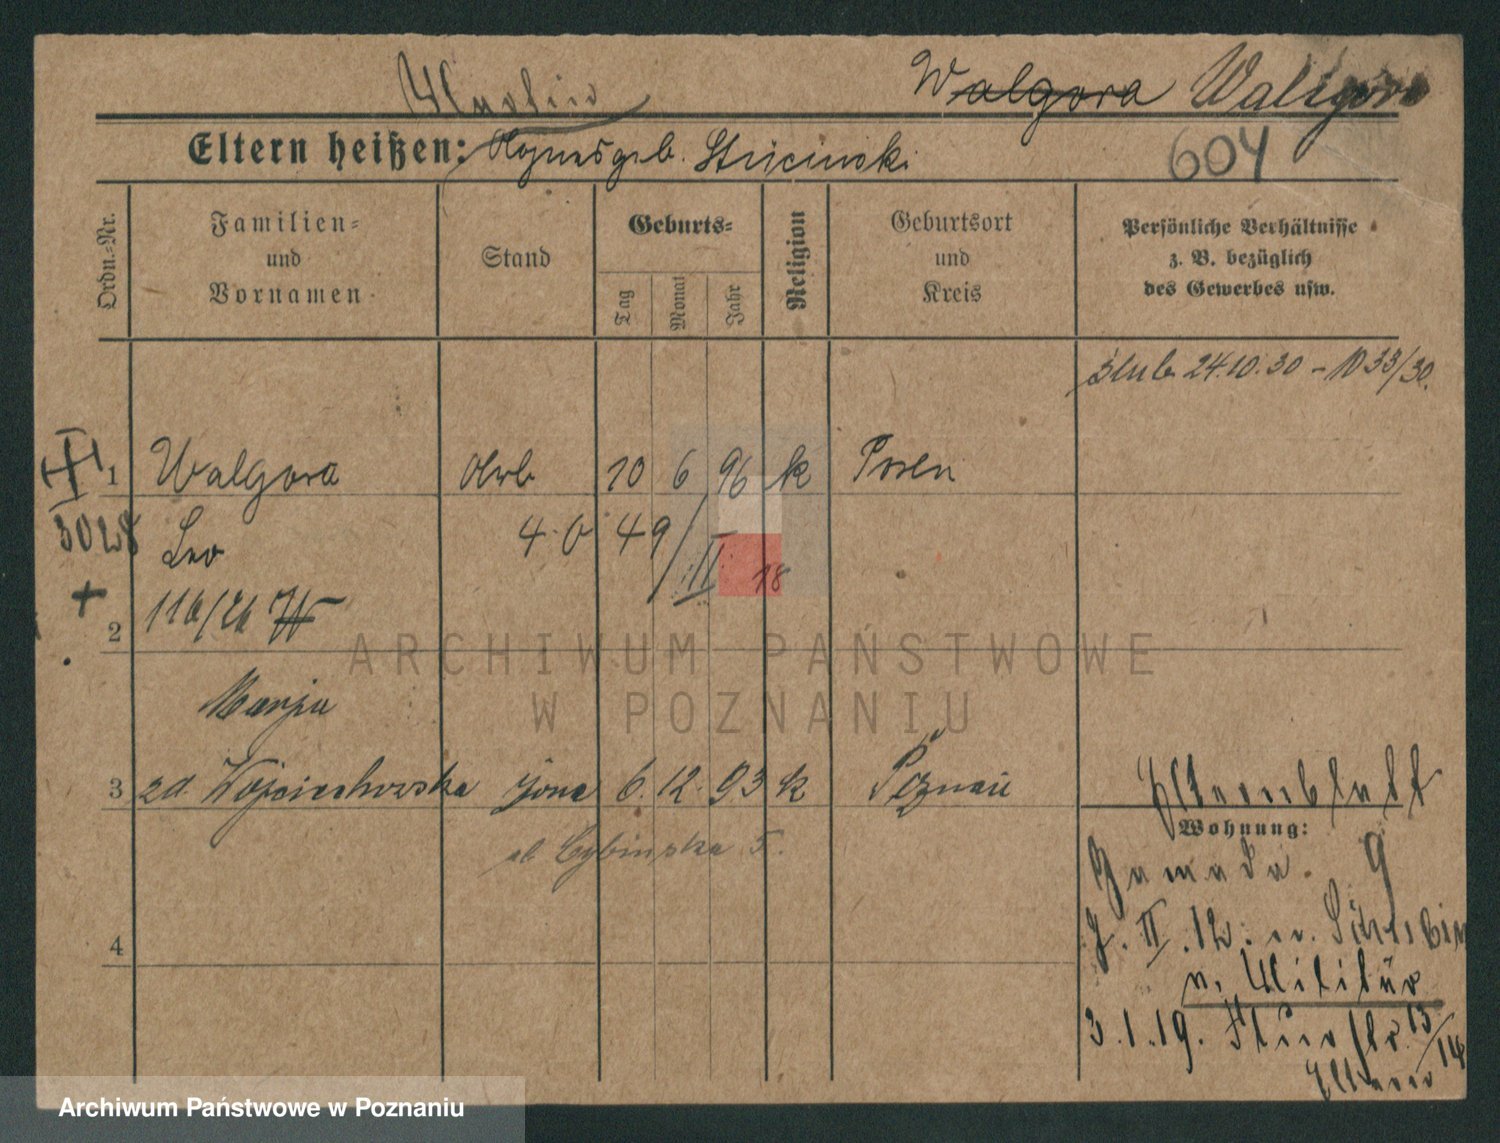 Walgora Waligora
Eltern heißen: Agnes geb. Stricinski
604
Ordn.-Nr.
Familien- und Vornamen
Stand
Geburts-
Tag
Monat
Jahr
Religion
Geburtsort und Kreis
Persönliche Verhältnisse z. B. bezüglich des Gewerbes usw.
ślub 24.10.30 - 1033/30.
1 Walgora 10 6 96 k Posen
3028 Leo 4. 0 49/II 18
2
Marja
3 zd. Wojciechowska żona 6. 12. 93 k Poznań
ul. Cybińska 5.
Elternblatt
Wohnung:
9
4
J. II. 12. v.
v. Militär
3.1.19. 13/14
Eltern
ARCHIWUM PAŃSTWOWE
W POZNANIU
Archiwum Państwowe w Poznaniu